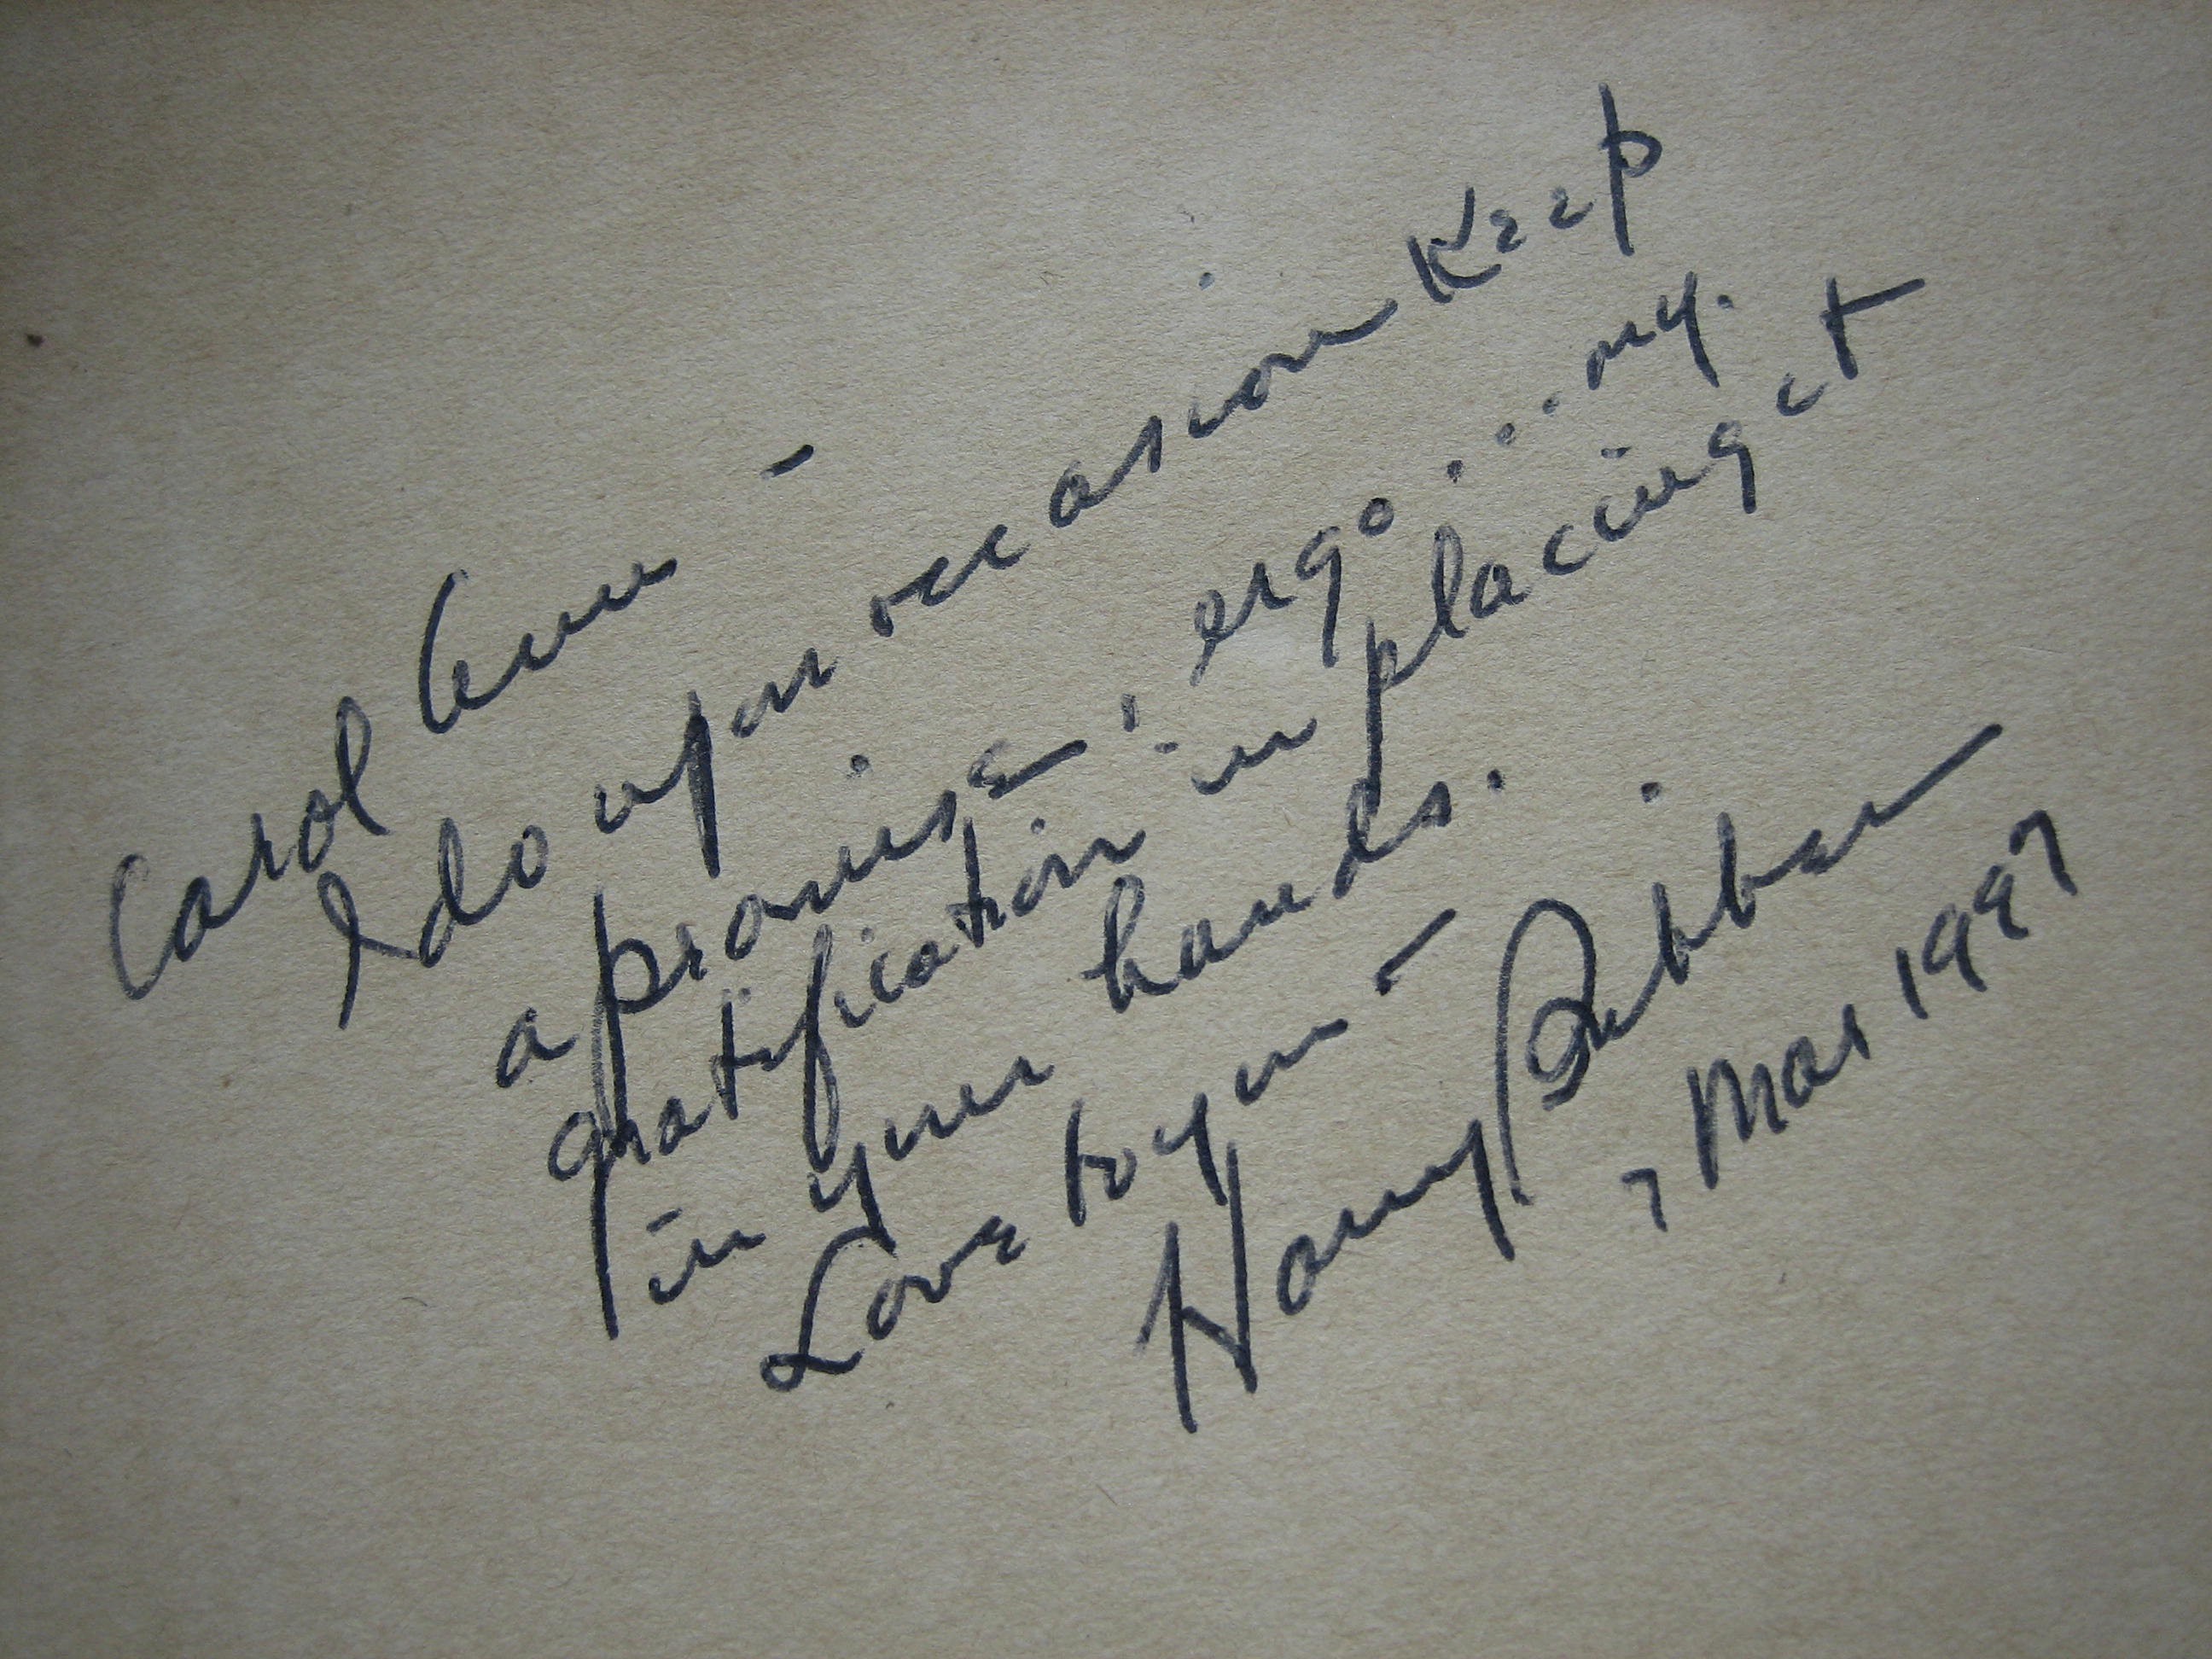 Carol Ann –
I do upon occasion keep
a promise; ergo.... my
gratification in placing it
in your hands.
Love to you –
Harry
7 Mar 1997